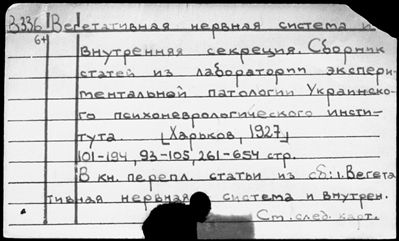 В336 Вегетативная нервная система и
6+ внутренняя секреция. Сборник
статей из лаборатории экспери-
ментальной патологии Украинско-
го психоневрологического инсти-
тута [Харьков, 1927]
101-194, 93-105, 261-654 стр.
В кн. перепл. статьи из сб: 1. Вегета
тивная нервная система и внутрен.
См. след. карт.